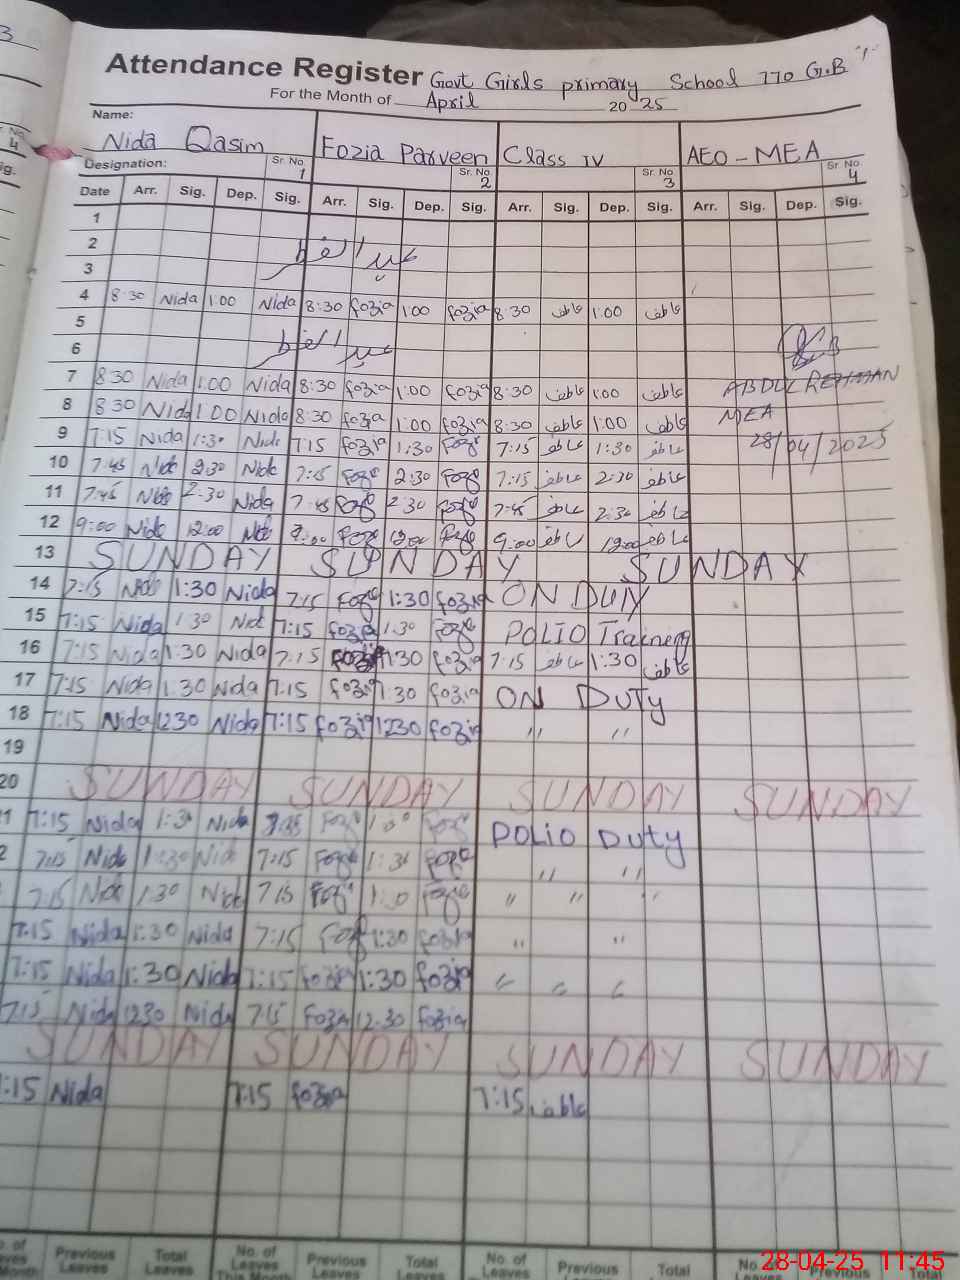 Attendance Register Govt Girls primary School 770 G.B
For the Month of April 2025
Name:
Nida Qasim Fozia Parveen Class IV AEO - MEA
Designation: Sr. No. 1 Sr. No. 2 Sr. No. 3 Sr. No. 4
Date Arr. Sig. Dep. Sig. Arr. Sig. Dep. Sig. Arr. Sig. Dep. Sig. Arr. Sig. Dep. Sig.
1
2 عید الفطر
3
4 8:30 Nida 1:00 Nida 8:30 fozia 1:00 fozia 8:30 عاطف 1:00 عاطف
5
6 عید الفطر
7 8:30 Nida 1:00 Nida 8:30 fozia 1:00 fozia 8:30 عاطف 1:00 عاطف ABDUL REHMAN
8 8:30 Nida 1:00 Nida 8:30 fozia 1:00 fozia 8:30 عاطف 1:00 عاطف MEA
9 7:15 Nida 1:30 Nida 7:15 fozia 1:30 fozia 7:15 عاطف 1:30 عاطف 28/04/2025
10 7:45 Nida 2:30 Nida 7:15 fozia 2:30 fozia 7:15 عاطف 2:30 عاطف
11 7:45 Nida 2:30 Nida 7:45 fozia 2:30 fozia 7:45 عاطف 2:30 عاطف
12 9:00 Nida 12:00 Nida 9:00 fozia 12:00 fozia 9:00 عاطف 12:00 عاطف
13 SUNDAY SUNDAY SUNDAY
14 7:15 Nida 1:30 Nida 7:15 fozia 1:30 fozia ON DUTY
15 7:15 Nida 1:30 Nida 7:15 fozia 1:30 fozia POLIO Training
16 7:15 Nida 1:30 Nida 7:15 fozia 1:30 fozia 7:15 عاطف 1:30 عاطف
17 7:15 Nida 1:30 Nida 7:15 fozia 1:30 fozia ON DUTY
18 7:15 Nida 1230 Nida 7:15 fozia 1230 fozia " "
19
20 SUNDAY SUNDAY SUNDAY SUNDAY
1 7:15 Nida 1:30 Nida fozia fozia POLIO Duty
2 7:15 Nida 1:30 Nida 7:15 fozia 1:30 fozia " "
7:15 Nida 1:30 Nida 7:15 fozia 1:30 fozia " " "
7:15 Nida 1:30 Nida 7:15 fozia 1:30 fozia " "
7:15 Nida 1:30 Nida 7:15 fozia 1:30 fozia " " "
7:15 Nida 1230 Nida 7:15 fozia 12:30 fozia
SUNDAY SUNDAY SUNDAY SUNDAY
:15 Nida 7:15 fozia 7:15 عاطف
No. of Leaves This Month Previous Leaves Total Leaves No. of Leaves This Month Previous Leaves Total Leaves No. of Leaves Previous Total No. of Previous Total
28-04-25 11:45